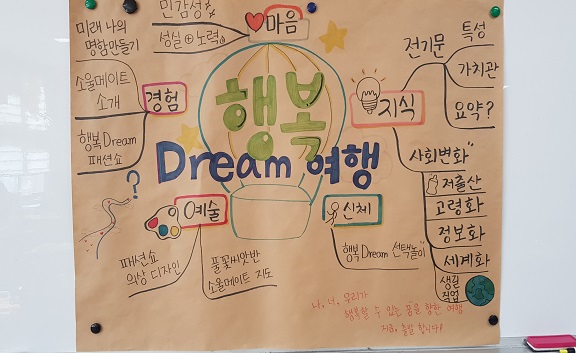 민감성
성실 ⊕ 노력
마음
미래 나의
명함만들기
소울메이트
소개
행복 Dream
패션쇼
경험
행복
Dream 여행
전기문
특성
가치관
요약?
지식
사회변화
저출산
고령화
정보화
세계화
직업
예술
패션쇼
의상 디자인
풀꽃씨앗반
소울메이트 지도
신체
행복 Dream 선택놀이
나, 너, 우리가
행복할 수 있는 꿈을 향한 여행
지금, 출발 합니다!
?